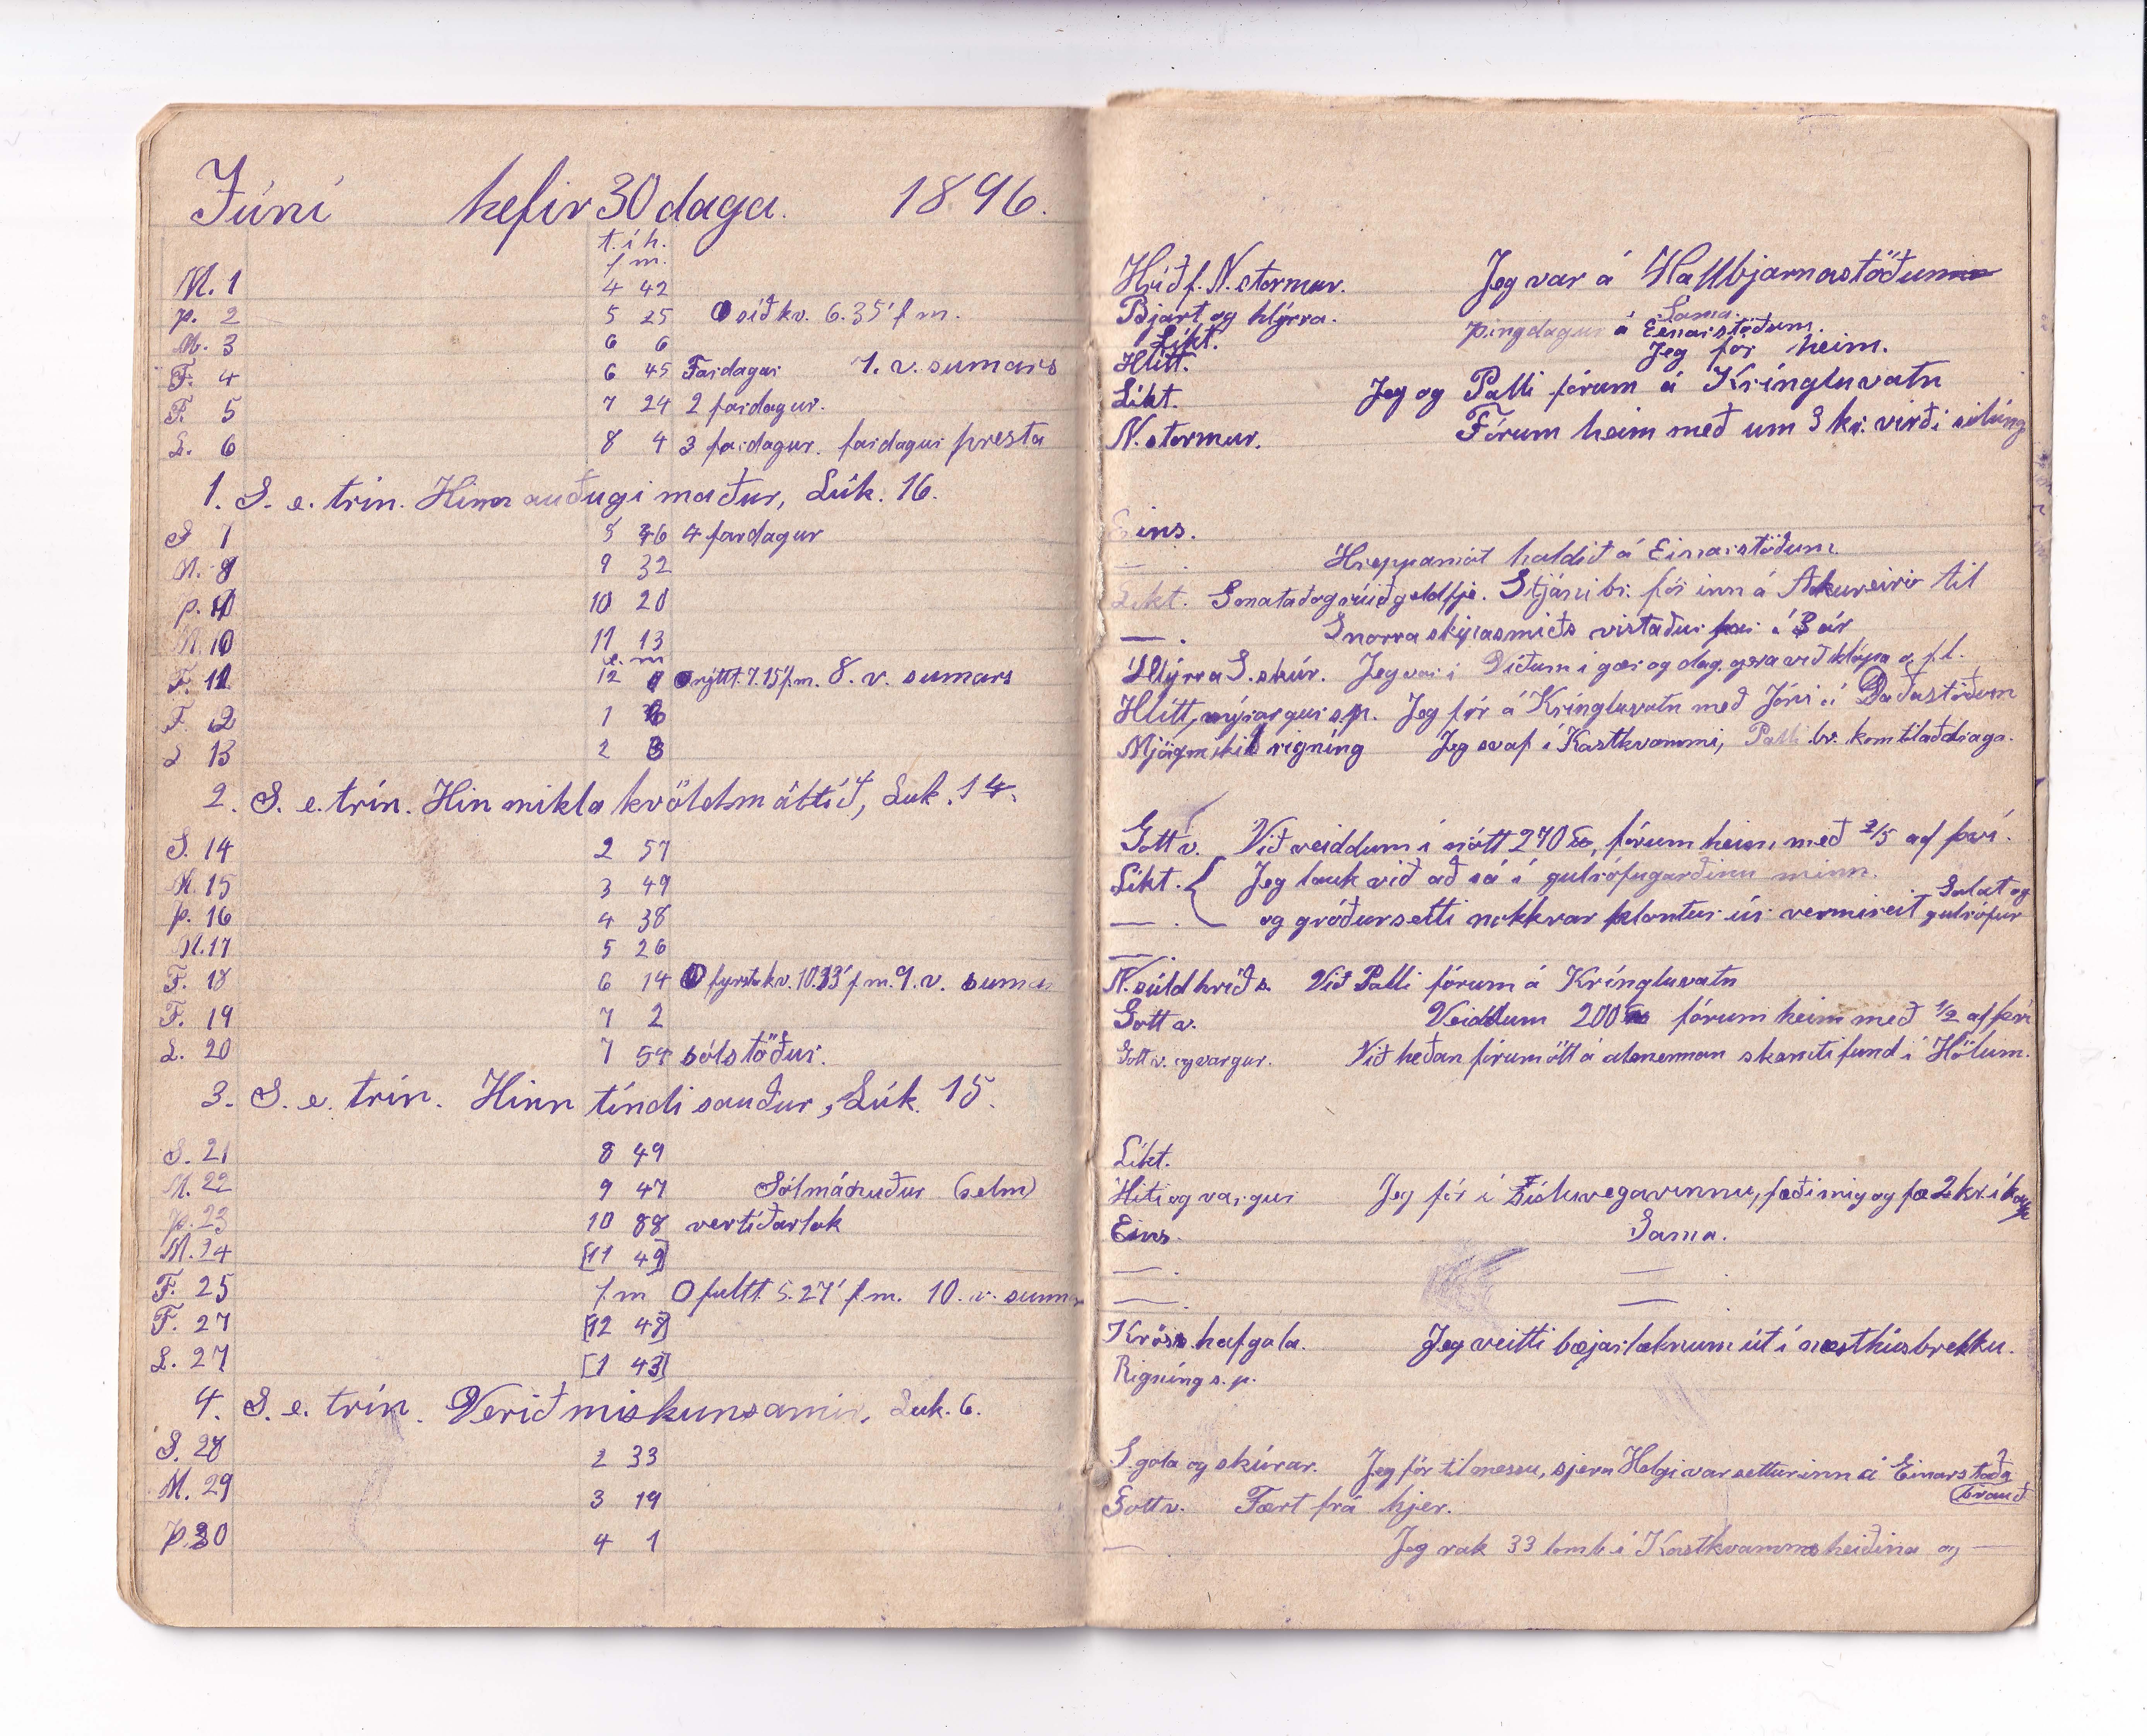 Júní hefir 30 daga. 1896.
t. í h.
f m.
M. 1 4 42
Þ. 2 5 25 síð kv. 6.35' f m.
M. 3 6 6
F. 4 6 45 Fardagar 7. v. sumars
F. 5 7 24 2 fardagur.
L. 6 8 4 3 fardagur. fardagur presta
1. S. e. trín. Hinn auðugi maður, Lúk. 16.
S 7 46 4 fardagur
M. 9 32
Þ. 10 20
M. 10 11 13
e. m
F. 11 12 nýtt. 7.15' f m. 8. v. sumars
F. 12 1
L 13 2 3
2. S. e. trín. Hin mikla kvöldmáltíð, Luk. 14.
S. 14 2 57
M. 15 3 49
Þ. 16 4 38
M. 17 5 26
F. 18 6 14 fyrsta kv. 10.33' f m. 9. v. suma
F. 19 7 2
L. 20 7 54 sólstöður.
3. S. e. trín. Hinn tíndi sauður, Lúk. 15.
S. 21 8 49
M. 22 9 47 Sólmánuður (selm)
Þ. 23 10 88 vertíðarlok
M. 24 [11 49]
F. 25 f m O fullt. 5.27' f m. 10. v. suma
F. 27 [12 48]
L. 27 [1 43]
4. S. e. trín. Verið miskunsamir, Luk. 6.
S. 28 2 33
M. 29 3 19
Þ. 30 4 1
Hríð f. N. stormur. Jeg var á Hallbjarnastöðum
Bjart og hlýrra. Sama.
Líkt. Þingdagur á Einarstöðum.
Hlítt. Jeg fór heim.
Líkt. Jeg og Palli fórum á Kríngluvatn
N. stormur. Fórum heim með um 3 kr. virði silúng
Eins.
— . Hreppamót haldið á Einarstöðum
Líkt. Smalað og rúið geldfje. Stjáni br. fór inn á Akureiri til
— . Snorra skýrasmiðs vistaður þar í 3 ár
Hlýrra S. skúr. Jeg var í Víðum í gær og dag, gera við klápa o. fl.
Hlítt, mýrargur s.p. Jeg fór á Kríngluvatn með Jóni á Daðastöðum
Mjög mikil rigníng Jeg svaf í Kasthvammi, Palli br. kom til að draga.
Gott v. Við veiddum í nótt 270 , fórum heim með 2/5 af því.
Líkt. { Jeg lauk við að sá í gulrófugarðinn minn.
— . og gróðursetti nokkrar plöntur úr vermireit Salat og gulrófur
— .
N. súld hríð s. Við Palli fórum á Kríngluvatn
Gott v. Veiddum 200 fórum heim með 1/2 af því
Gott v. og vargur. Við heðan fórum ött á almennan skemtifund í Hólum.
Líkt.
Hiti og vargur Jeg fór í Fljótsvegavinnu, fæði mig og fæ 2 kr. í kaup
Eins. Sama.
— . —
— . —
Kröss. hafgola. Jeg veitti bæjarlæknum út í nesthúsbrekku.
Rigníng s. p.
S. gola og skúrar. Jeg fór til messu, sjera Helgi var setturinn á Einarstaða brauð
Gott v. Fært frá hjer.
— Jeg rak 33 lömb í Kasthvammsheiðina og —